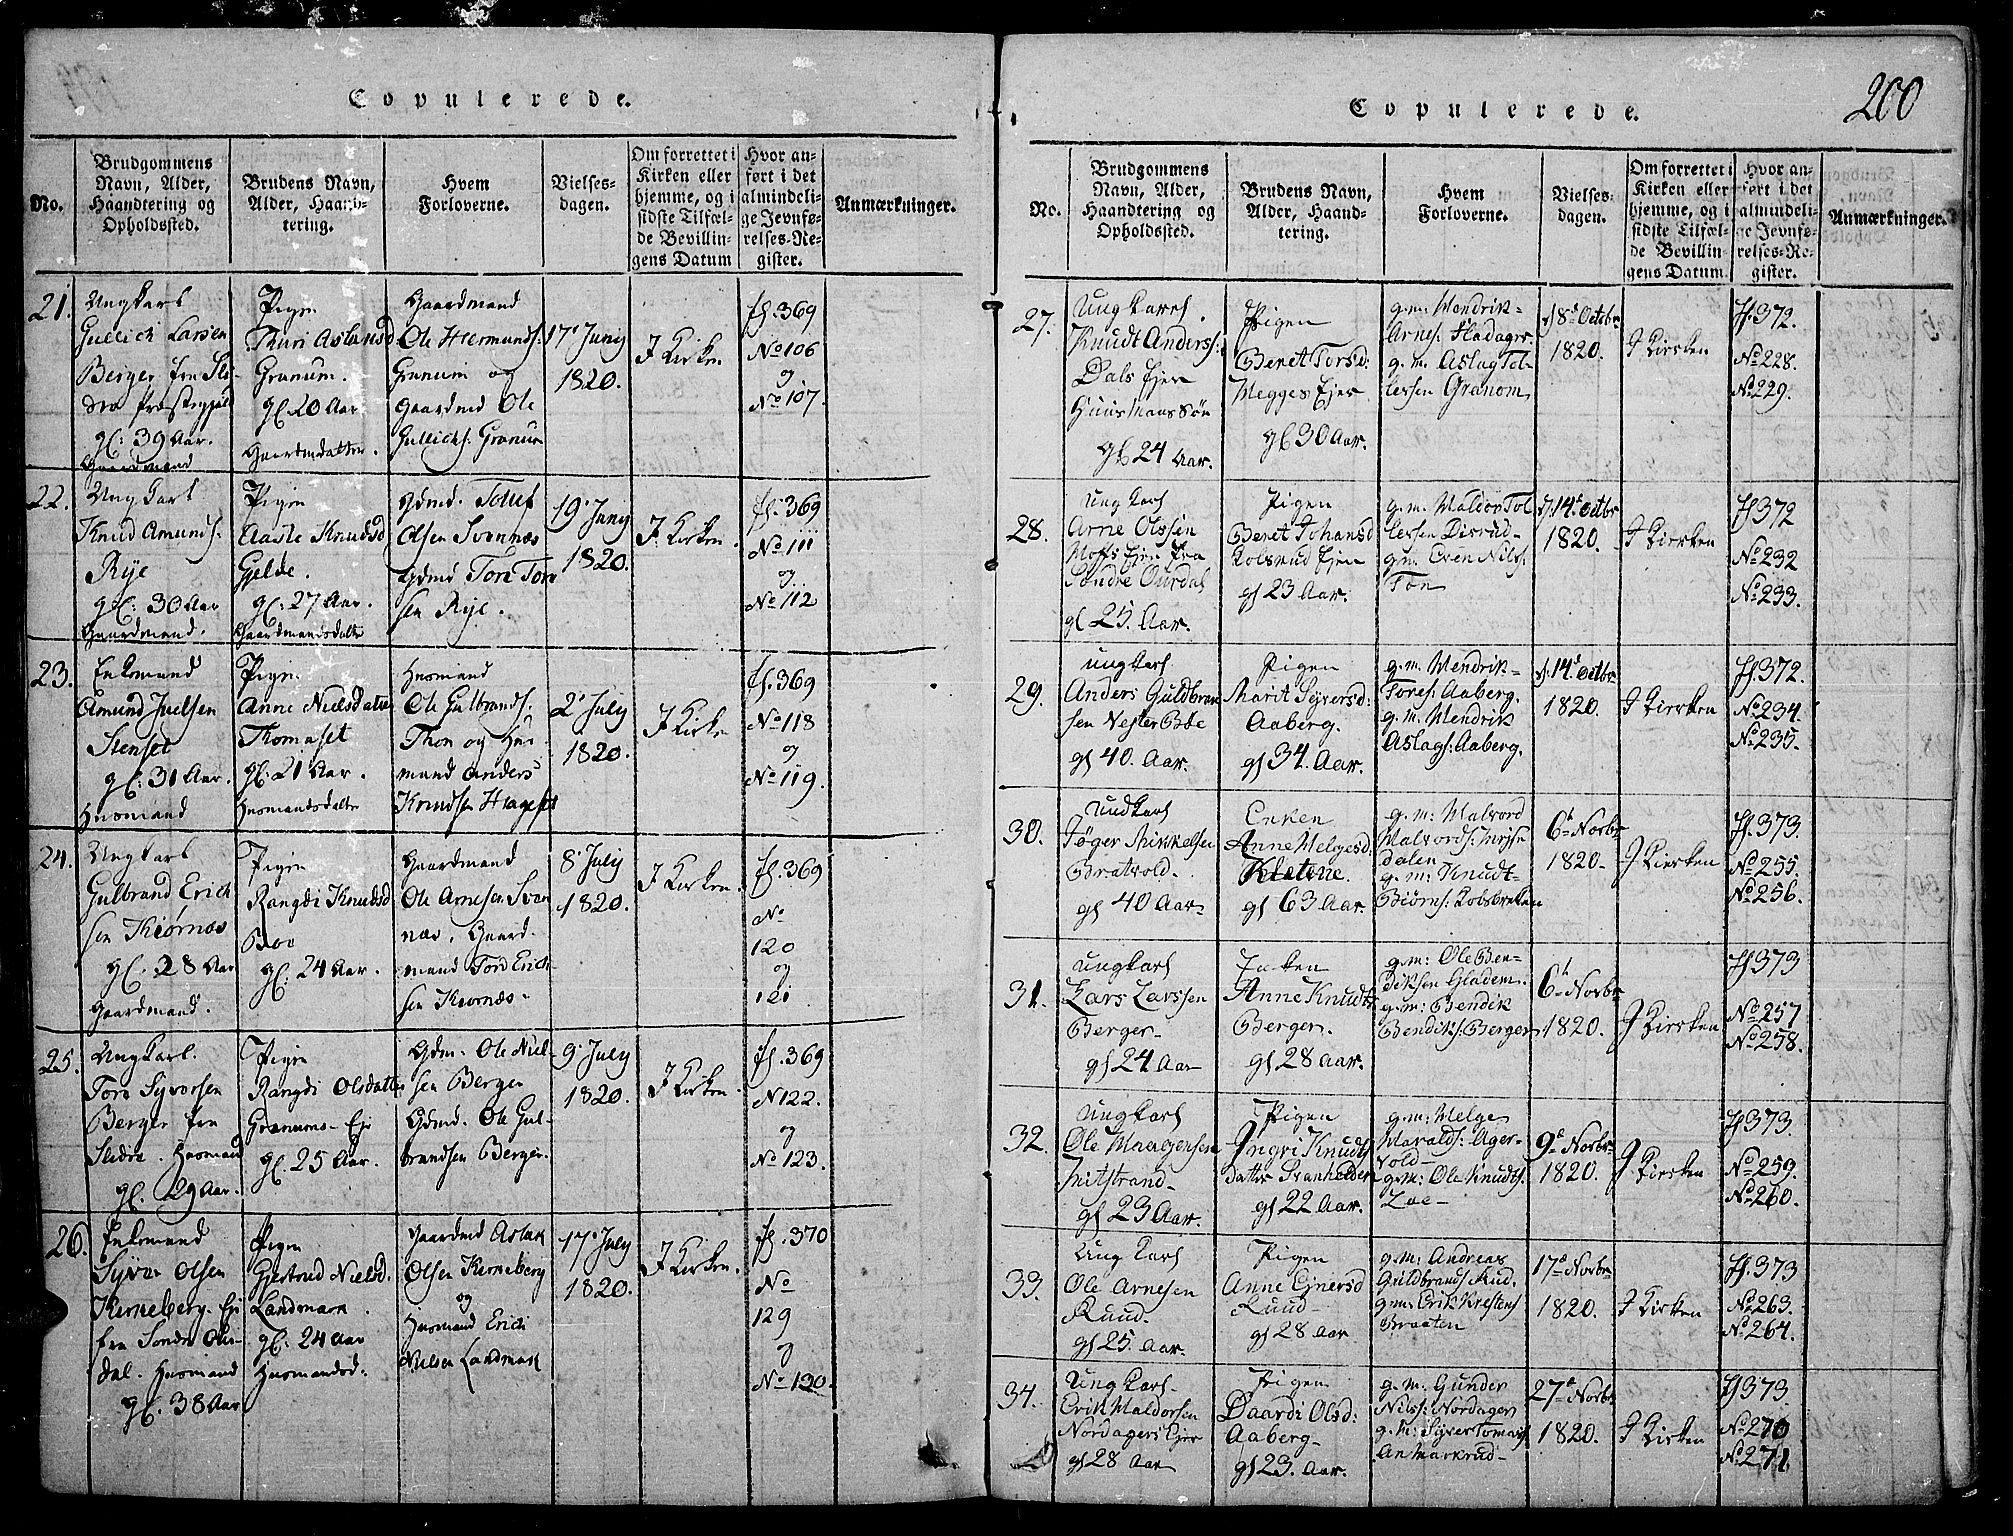 Copulerede.
No.
Brudgommens
Navn, Alder,
Haandtering og
Opholdssted.
Brudens Navn,
Alder, Haand-
tering.
Hvem
Forloverne.
Vielses-
dagen.
Om forrettet i
Kirken eller
hjemme, og i
sidste Tilfæl-
de Bevillin-
gens Datum
Hvor an-
ført i det
almindeli-
ge Jevnfø-
relses-Re-
gister.
Anmærkninger.
21.
Ungkarl
Gullich Larsen
Berger fra Sli-
dre Præstegjæld
gl: 39 Aar.
Gaardmand
Pigen
Thuri Aslausd
Granum.
gl 20 Aar
Gaardmdatter.
Gaardmand
Ole Hermunds:
Granum og
Gaardmd Ole
Gullichs: Granum
17' Juny
1820.
I Kirken
fl. 369
No 106
og
No 107.
22.
Ungkarl
Knud Amunds.
Rye
gl: 30 Aar
Gaardmand.
Pigen
Aaste Knudsd
Gjelde.
gl: 27 Aar.
Gaardmandsdatte
Gdmd. Tolef
Olsen Svennæs
Gdmd Tore Tore
sen Rye.
19' Juny
1820.
I Kirken.
fl. 369
No 111
og.
No 112
23.
Enkemand
Amund Juelsen
Stenset
gl: 31 Aar.
Husmand
Pigen
Anne Nielsdatter
Thomaset
gl. 21 Aar.
Husmandsdatte
Husmand
Ole Gulbrands.
Thon og Hus-
mand Anders
Knudsen Hagaset
2' July
1820.
I Kirken
fl. 369
No 118
og
No 119.
24.
Ungkarl
Gulbrand Erich
sen Kiørnæs
gl. 28 Aar
Gaardmand.
Pigen
Rangdi Knudsd
Boe
gl: 24 Aar.
Gaardmand
Ole Arnesen Sven
næs. Gaard-
mand Tore Erich
sen Kiørnæs.
8' July
1820.
I Kirken.
fl. 369
No
120
og
121
25.
Ungkarl.
Tore Syversen
Berger fra
Slidre. Husmand
gl. 29 Aar.
Pigen
Rangdi Olsdatter
Granums- Eje
gl. 25 Aar.
Gdm. Ole Niel-
sen Berger
Gdmd. Ole Gul-
brandsen Berger.
9' July
1820.
I Kirken.
fl. 369
N 122.
og
No 123.
26.
Enkemand
Syver Olsen
Kerneberg. Eje
fra Søndre Our-
dal. Husmand
gl. 38 Aar
Pigen
Giertrud Nielsd.
Landmark.
gl. 24 Aar
Husmandsd.
Gaardmd Aslak
Olsen Kerneberg
og
Husmand Erich
Nielsen Landmark
17' July
1820.
I Kirken.
fl. 370
No
129
og
No 130.
200
Copulerede.
No.
Brudgommens
Navn, Alder,
Haandtering og
Opholdssted.
Brudens Navn,
Alder, Haand-
tering.
Hvem
Forloverne.
Vielses-
dagen.
Om forrettet i
Kirken eller
hjemme, og i
sidste Tilfæl-
de Bevillin-
gens Datum.
Hvor an-
ført i det
almindeli-
ge Jevnfø-
relses-Re-
gister.
Anmærkninger.
27.
Ungkarl.
Knudt Anders:
Dals Ejer
Huusmans Søn
gl 24 Aar.
Pigen
Beret Torsd:
Megges Ejer
gl 30 Aar.
g.m. Hendrik-
Arnes. Fladager
g.m. Aslag Tol-
lefsen Granom
8d Octbr
1820.
I Kierken
fl 372.
No 228.
No 229.
28.
Ungkarl
Arne Olssen
Moffs Ejer fra
Søndre Ourdal
gl 25. Aar.
Pigen
Beret Johansd
Kolsrud Ejer
gl 23 Aar.
g.m. Haldor Tol
lefsen Disrud-
g.m. Even Nils:
Ton
14d Octbr
1820.
I Kierken
fl 372
No 232
No 233.
29.
ungkarl
Anders Guldbran
sen Vester Bøe
gl 40. Aar.
Pigen
Marit Syversd:
Aaberg.
gl 34. Aar.
g.m. Hendrik-
Tores. Aaberg.
g.m. Hendrik
Aslags: Aaberg.
14d Octbr
1820.
I Kierken
fl 372.
No 234.
No 235.
30.
Undkarl
Jøger Mikkelsen
Bratvold.
gl 40 Aar-
Enken
Anne Helgesd:
Kletene.
gl 63 Aar.
g.m: Halvord
Halvords:
dalen
g.m: Knudt-
Biørns: Kolsbrekken
6d Novbr
1820-
I Kierken
fl. 373.
No 255.
No 256.
31.
Ungkarl
Lars Larssen
Berger-
gl 24 Aar
Enken
Anne Knudts
Berger.
gl 28 Aar.
g.m: Ole Ben-
diksen Gladem-
g.m: Bendik
Bendiks: Berger
6d Novbr
1820.
I Kierken
fl 373
No 257
No 258.
32.
Ungkarl
Ole Maagensen
Fritstrand-
gl 23 Aar.
Pigen
Ingri Knudts
datter Svanhelden
gl 22 Aar.
g.m: Helge
Haralds: Ager-
vold-
g.m: Ole Knudts.
Loe-
9d Novbr
1820.
I Kierken
fl 373.
No 259.
No 260.
33.
Ung Karl
Ole Arnesen
Ruud-
gl 25. Aar.
Pigen
Anne Ejnersd
Ruud-
gl 28 Aar
g.m: Andreas
Guldbrands Rud.
g.m. Erik Krestens
Braaten
17d Novbr
1820.
I Kirken
fl. 373
No 263.
No 264.
34.
Ung Karl-
Erik Haldorsen
Nordagers Ejer
gl 28 Aar
Pigen
Daardi Olsd:
Aaberg-
gl 23. Aar.
g.m. Gunder
Nils: Nordager
g.m: Syver Tomas
sen Markrud-
27d Novbr
1820.
I Kirken
fl 373.
No 270
No 271.